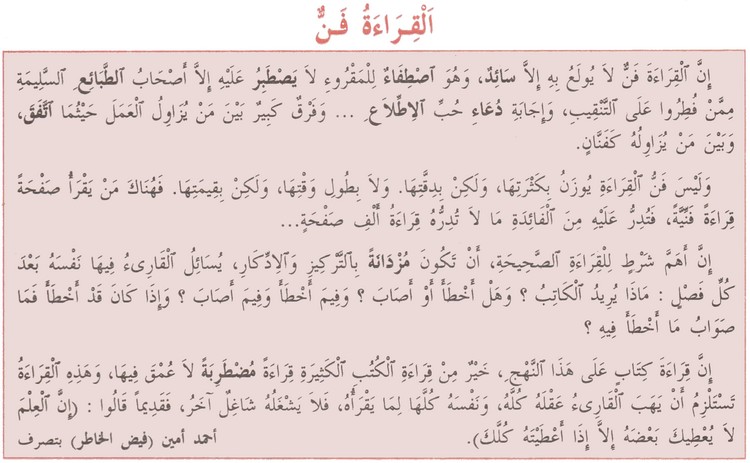 اَلْقِرَاءَةُ فَنٌّ
إِنَّ ٱلْقِرَاءَةَ فَنٌّ لاَ يُولَعُ بِهِ إِلاَّ سَائِدٌ، وَهُوَ ٱصْطِفَاءٌ لِلْمَقْرُوءِ لاَ يَصْطَبِرُ عَلَيْهِ إِلاَّ أَصْحَابُ ٱلطَّبَائِعِ ٱلسَّلِيمَةِ
مِمَّنْ فُطِرُوا عَلَى ٱلتَّنْقِيبِ، وَإِجَابَةِ دُعَاءِ حُبِّ ٱلاِطِّلاَعِ ... وَفَرْقٌ كَبِيرٌ بَيْنَ مَنْ يُزَاوِلُ ٱلْعَمَلَ حَيْثُمَا ٱتَّفَقَ،
وَبَيْنَ مَنْ يُزَاوِلُهُ كَفَنَّانٍ.
وَلَيْسَ فَنُّ ٱلْقِرَاءَةِ يُوزَنُ بِكَثْرَتِهَا، وَلَكِنْ بِدِقَّتِهَا. وَلاَ بِطُولِ وَقْتِهَا، وَلَكِنْ بِقِيمَتِهَا. فَهُنَاكَ مَنْ يَقْرَأُ صَفْحَةً
قِرَاءَةً فَنِّيَّةً، فَتُدِرُّ عَلَيْهِ مِنَ ٱلْفَائِدَةِ مَا لاَ تُدِرُّهُ قِرَاءَةُ أَلْفِ صَفْحَةٍ...
إِنَّ أَهَمَّ شَرْطٍ لِلْقِرَاءَةِ ٱلصَّحِيحَةِ، أَنْ تَكُونَ مُزْدَانَةً بِٱلتَّرْكِيزِ وَٱلاِدِّكَارِ، يُسَائِلُ ٱلْقَارِىءُ فِيهَا نَفْسَهُ بَعْدَ
كُلِّ فَصْلٍ : مَاذَا يُرِيدُ ٱلْكَاتِبُ ؟ وَهَلْ أَخْطَأَ أَوْ أَصَابَ ؟ وَفِيمَ أَخْطَأَ وَفِيمَ أَصَابَ ؟ وَإِذَا كَانَ قَدْ أَخْطَأَ فَمَا
صَوَابُ مَا أَخْطَأَ فِيهِ ؟
إِنَّ قِرَاءَةَ كِتَابٍ عَلَى هَذَا ٱلنَّهْجِ، خَيْرٌ مِنْ قِرَاءَةِ ٱلْكُتُبِ ٱلْكَثِيرَةِ قِرَاءَةً مُضْطَرِبَةً لاَ عُمْقَ فِيهَا، وَهَذِهِ ٱلْقِرَاءَةُ
تَسْتَلْزِمُ أَنْ يَهَبَ ٱلْقَارِىءُ عَقْلَهُ كُلَّهُ، وَنَفْسَهُ كُلَّهَا لِمَا يَقْرَأُهُ، فَلاَ يَشْغَلُهُ شَاغِلٌ آخَرُ، فَقَدِيماً قَالُوا : (إِنَّ ٱلْعِلْمَ
لاَ يُعْطِيكَ بَعْضَهُ إِلاَّ إِذَا أَعْطَيْتَهُ كُلَّكَ). أحمد أمين (فيض الخاطر) بتصرف